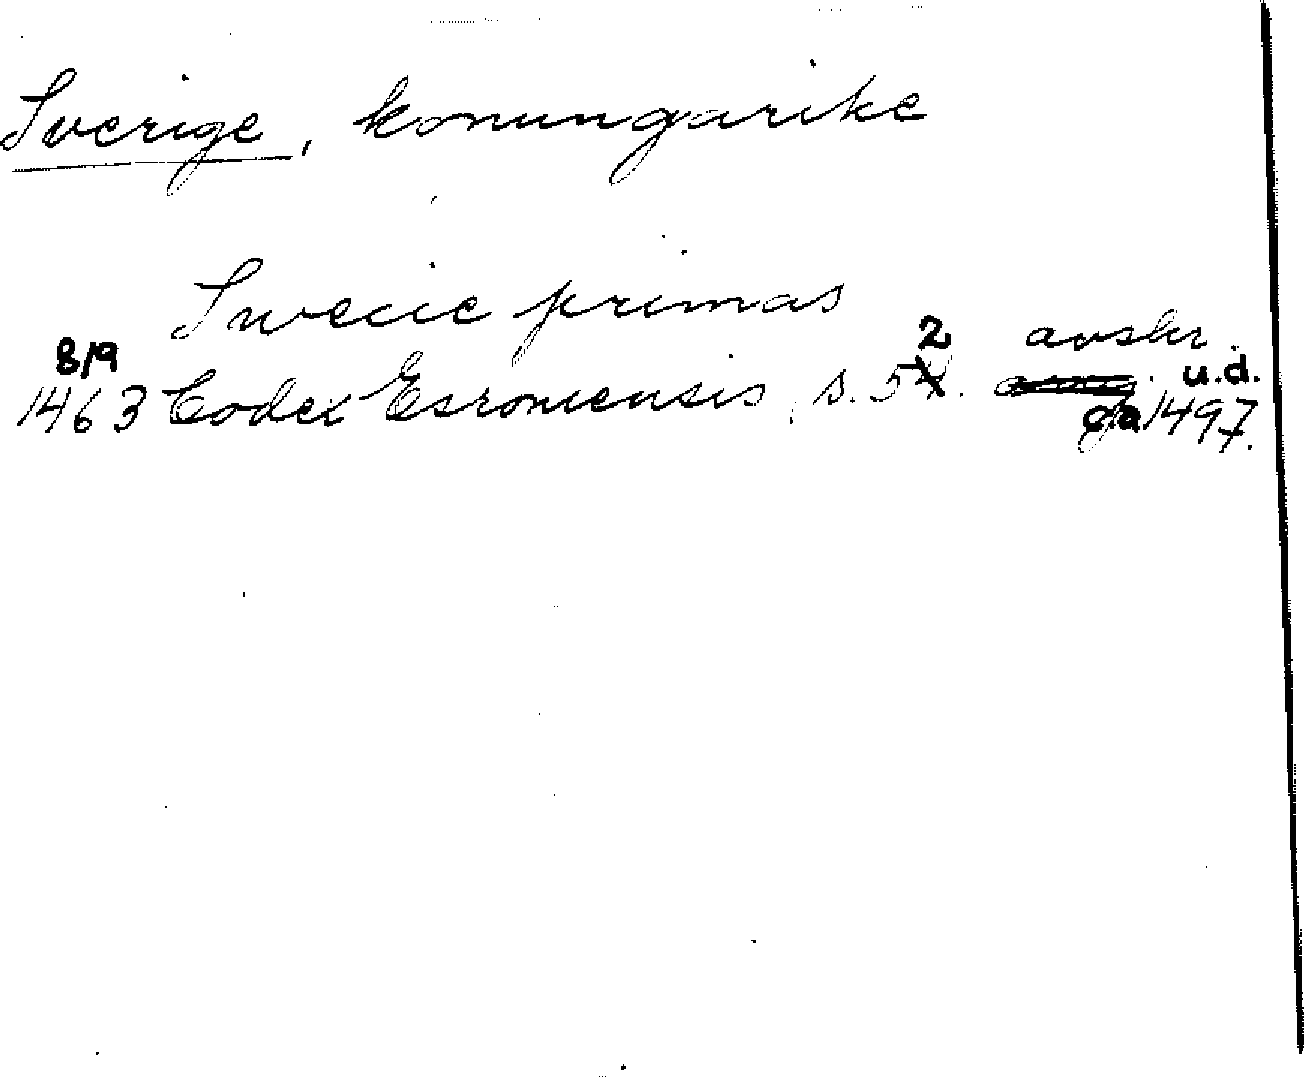 Sverige, konungarike
Swecie primas
8/9 2 avskr. u.d.
1463 Codex Esromensis, s. 5 ca 1497.